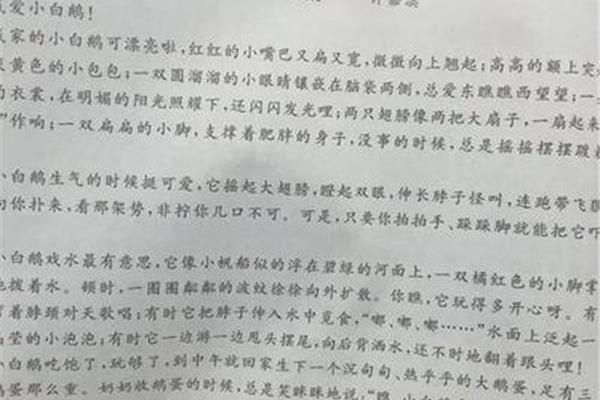 爱小白鹅!
家的小白鹅可漂亮啦,红红的小嘴巴又扁又宽,微微向上翘起;高高的额上突
黄色的小包包;一双圆溜溜的小眼睛镶嵌在脑袋两侧,总爱东瞧瞧西望望;一
的衣裳,在明媚的阳光照耀下,还闪闪发光哩;两只翅膀像两把大扇子,一扇起来
”作响;一双扁扁的小脚,支撑着肥胖的身子,没事的时候,总是摇摇摆摆踱
小白鹅生气的时候挺可爱,它摇起大翅膀,瞪起双眼,伸长脖子怪叫,连跑带飞
向你扑来,看那架势,非拧你几口不可。可是,只要你拍拍手、跺跺脚就能把它吓
小白鹅戏水最有意思,它像小帆船似的浮在碧绿的河面上,一双橘红色的小脚掌
地拨着水。顿时,一圈圈粼粼的波纹徐徐向外扩散。你瞧,它玩得多开心呀。有
着脖颈对天歌唱;有时它把脖子伸入水中觅食,“嘟、嘟、嘟……”水面上泛起一
莹的小泡泡;有时它一边游一边甩头摆尾,向后背洒水,还不时地翻着跟头哩!
小白鹅吃饱了,玩够了,到中午就回家生下一个沉甸甸、热乎乎的大鹅蛋,足有三
蛋那么重。奶奶收鹅蛋的时候,总是笑眯眯地说:“瞧,小白